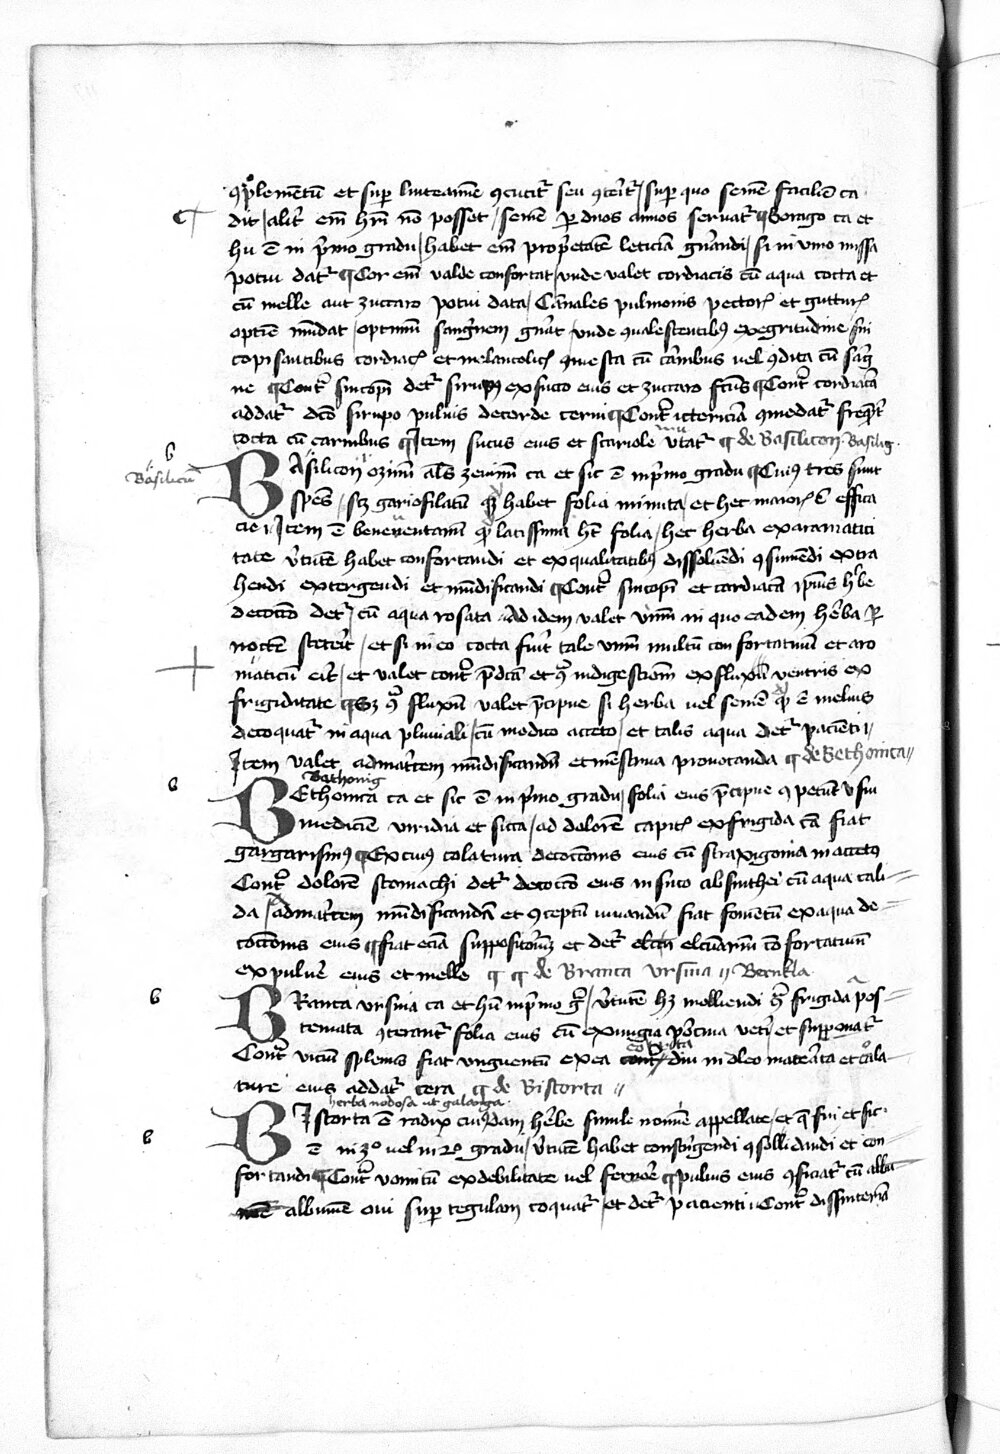 ꝯplementū et sup linteamē ꝯcutit᷑ seu ꝯterit᷑ / sup quo semē faciliē ca
dit / alit᷑ em̄ hr̄i nō posset / semē p duos annos servat᷑ ¶ Borago ca et
hu ē in p̄mo gradu / habet em̄ propretatē leticiā gn̄andi / si in vino missa
potui dat᷑ ¶ Cor em̄ valde confortat / unde valet cordiacis cū aqua cocta et
cū melle aut zuccaro potui data / Canales pulmonis pectorꝭ et gutturꝭ
optīe mūdat / optimū sangnem gn̄at / unde ꝯualescentibꝰ ex egritudine
sincopisantibus cordiacꝭ et melancolicꝭ ꝯmesta cū carnibus uel ꝯdita cū
¶ Cont᷑ sincopī det᷑ sirupꝰ ex succo eius et zuccaro fctūs ¶ Cont᷑ cordiacā
addat᷑ dc̄o sirupo puluis de corde cerui ¶ Cont᷑ ictericiā ꝯmedat᷑ freqn̄t
cocta cū carnibus ¶ Item sucus eius et scariole ¶ de Basilicon Basilig
b
Basilicū
BAsilicon ozimū als̄ ca et sic ē in p̄mo gradu ¶ Cuiꝰ tres sunt
sp̄es / scz gariofilatū habet folia minuta / et hec maiorꝭ ē effica
cie / Item ē beneuentanū latissima ht̄ folia / hec herba ex aramatici
tate v̄tutē habet confortandi et ex qualitatibꝰ dissoluēdi ꝯsumēdi extra
hendi extergendi et mūdificandi ¶ Cont᷑ sincopī et cardiacā ipiꝰ hbe
decoctio det᷑ / cū aqua rosata / Ad idem valet vinū in quo eadem hba p
noctē steterit / et si in eo cocta fuit tale vinū multū confortatiuū et aro
maticū erit / et valet cont᷑ p̄dcā et ꝯ indigestionē ex fluxū ventris ex
frigiditate ¶ Sz ꝯ fluxū valet p̄cipue si herba uel semē ē melius
decoquat᷑ in aqua pluuiali / cū modico aceto / et talis aqua det᷑ pacienti
Item valet ad matricem mūdificandū et mēstrua provocanda ¶ de Bethonica
b
Bethonig
BEthonica ca et sic ē in p̄mo gradu / folia eius p̄cipue ꝯpetunt vsui
medicīe viridia et sicca / ad dolorē capitꝭ ex frigida cā fiat
gargarismꝰ ¶ Ex cuiꝰ colatura decoctionis eius cū in aceto
Cont᷑ dolorē stomachi det᷑ decoctō eius in succo absinthei cū aqua cali
da / ad matricem mūdificandā et ꝯceptū iuuandū fiat fomētū ex aqua de
coctionis eius ¶ fiat eciā suppositoriū et det᷑ elcūariū cōfortatiuū
ex puluē eius et melle ¶ ¶ de Branca vrsina
b
BRanca vrsina ca et hū in p̄mo gͦ / v̄tutē hz molliendi frigida apos
temata ꝯterant᷑ folia eius cū exungia porcina veti et supponat᷑
Cont᷑ viciū splenis fiat vnguentū ex ea diu in oleo macerata et cola
ture eius addat᷑ cera ¶ de Bistorta
herba nodosa ut galanga
b
BIstorta ē radix cuiusdam hbe simile nomē appellate / et
ē in 3º uel in 2º gradu / v̄tutē habet constringendi ꝯsollidandi et con
fortandi ¶ Cont᷑ vomitū ex debilitate uel feruorē ¶ puluis eius ꝯficiat᷑ cū
albumē oui sup tegulam coquat᷑ / et det᷑ pacienti / Cont᷑ dissinteriā